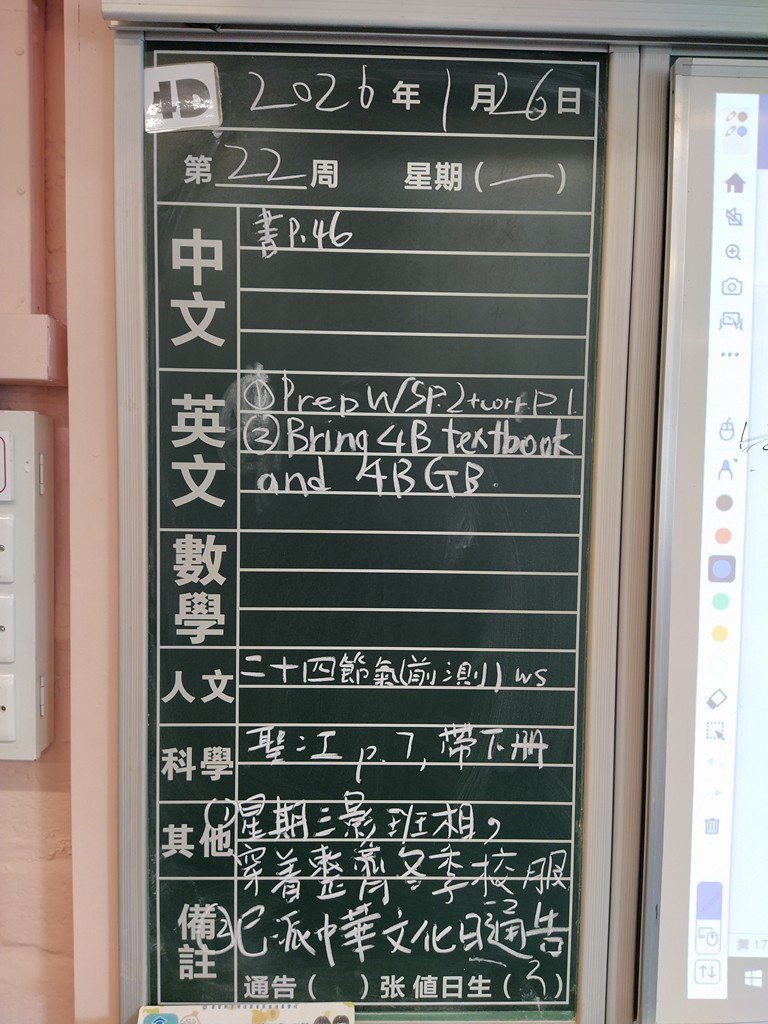 1D 2026年1月26日
第22周 星期(一)
中文 書P.46
英文 ①Prep WS P.2+corr. P.1
②Bring 4B textbook
and 4B GB.
數學
人文 二十四節氣(前測) ws
科學 聖江 p.7, 帶下冊
其他 (1)星期三影班相，
穿着整齊冬季校服
備註 (2)已派中華文化日通告
通告( )张 值日生(3)
第 17